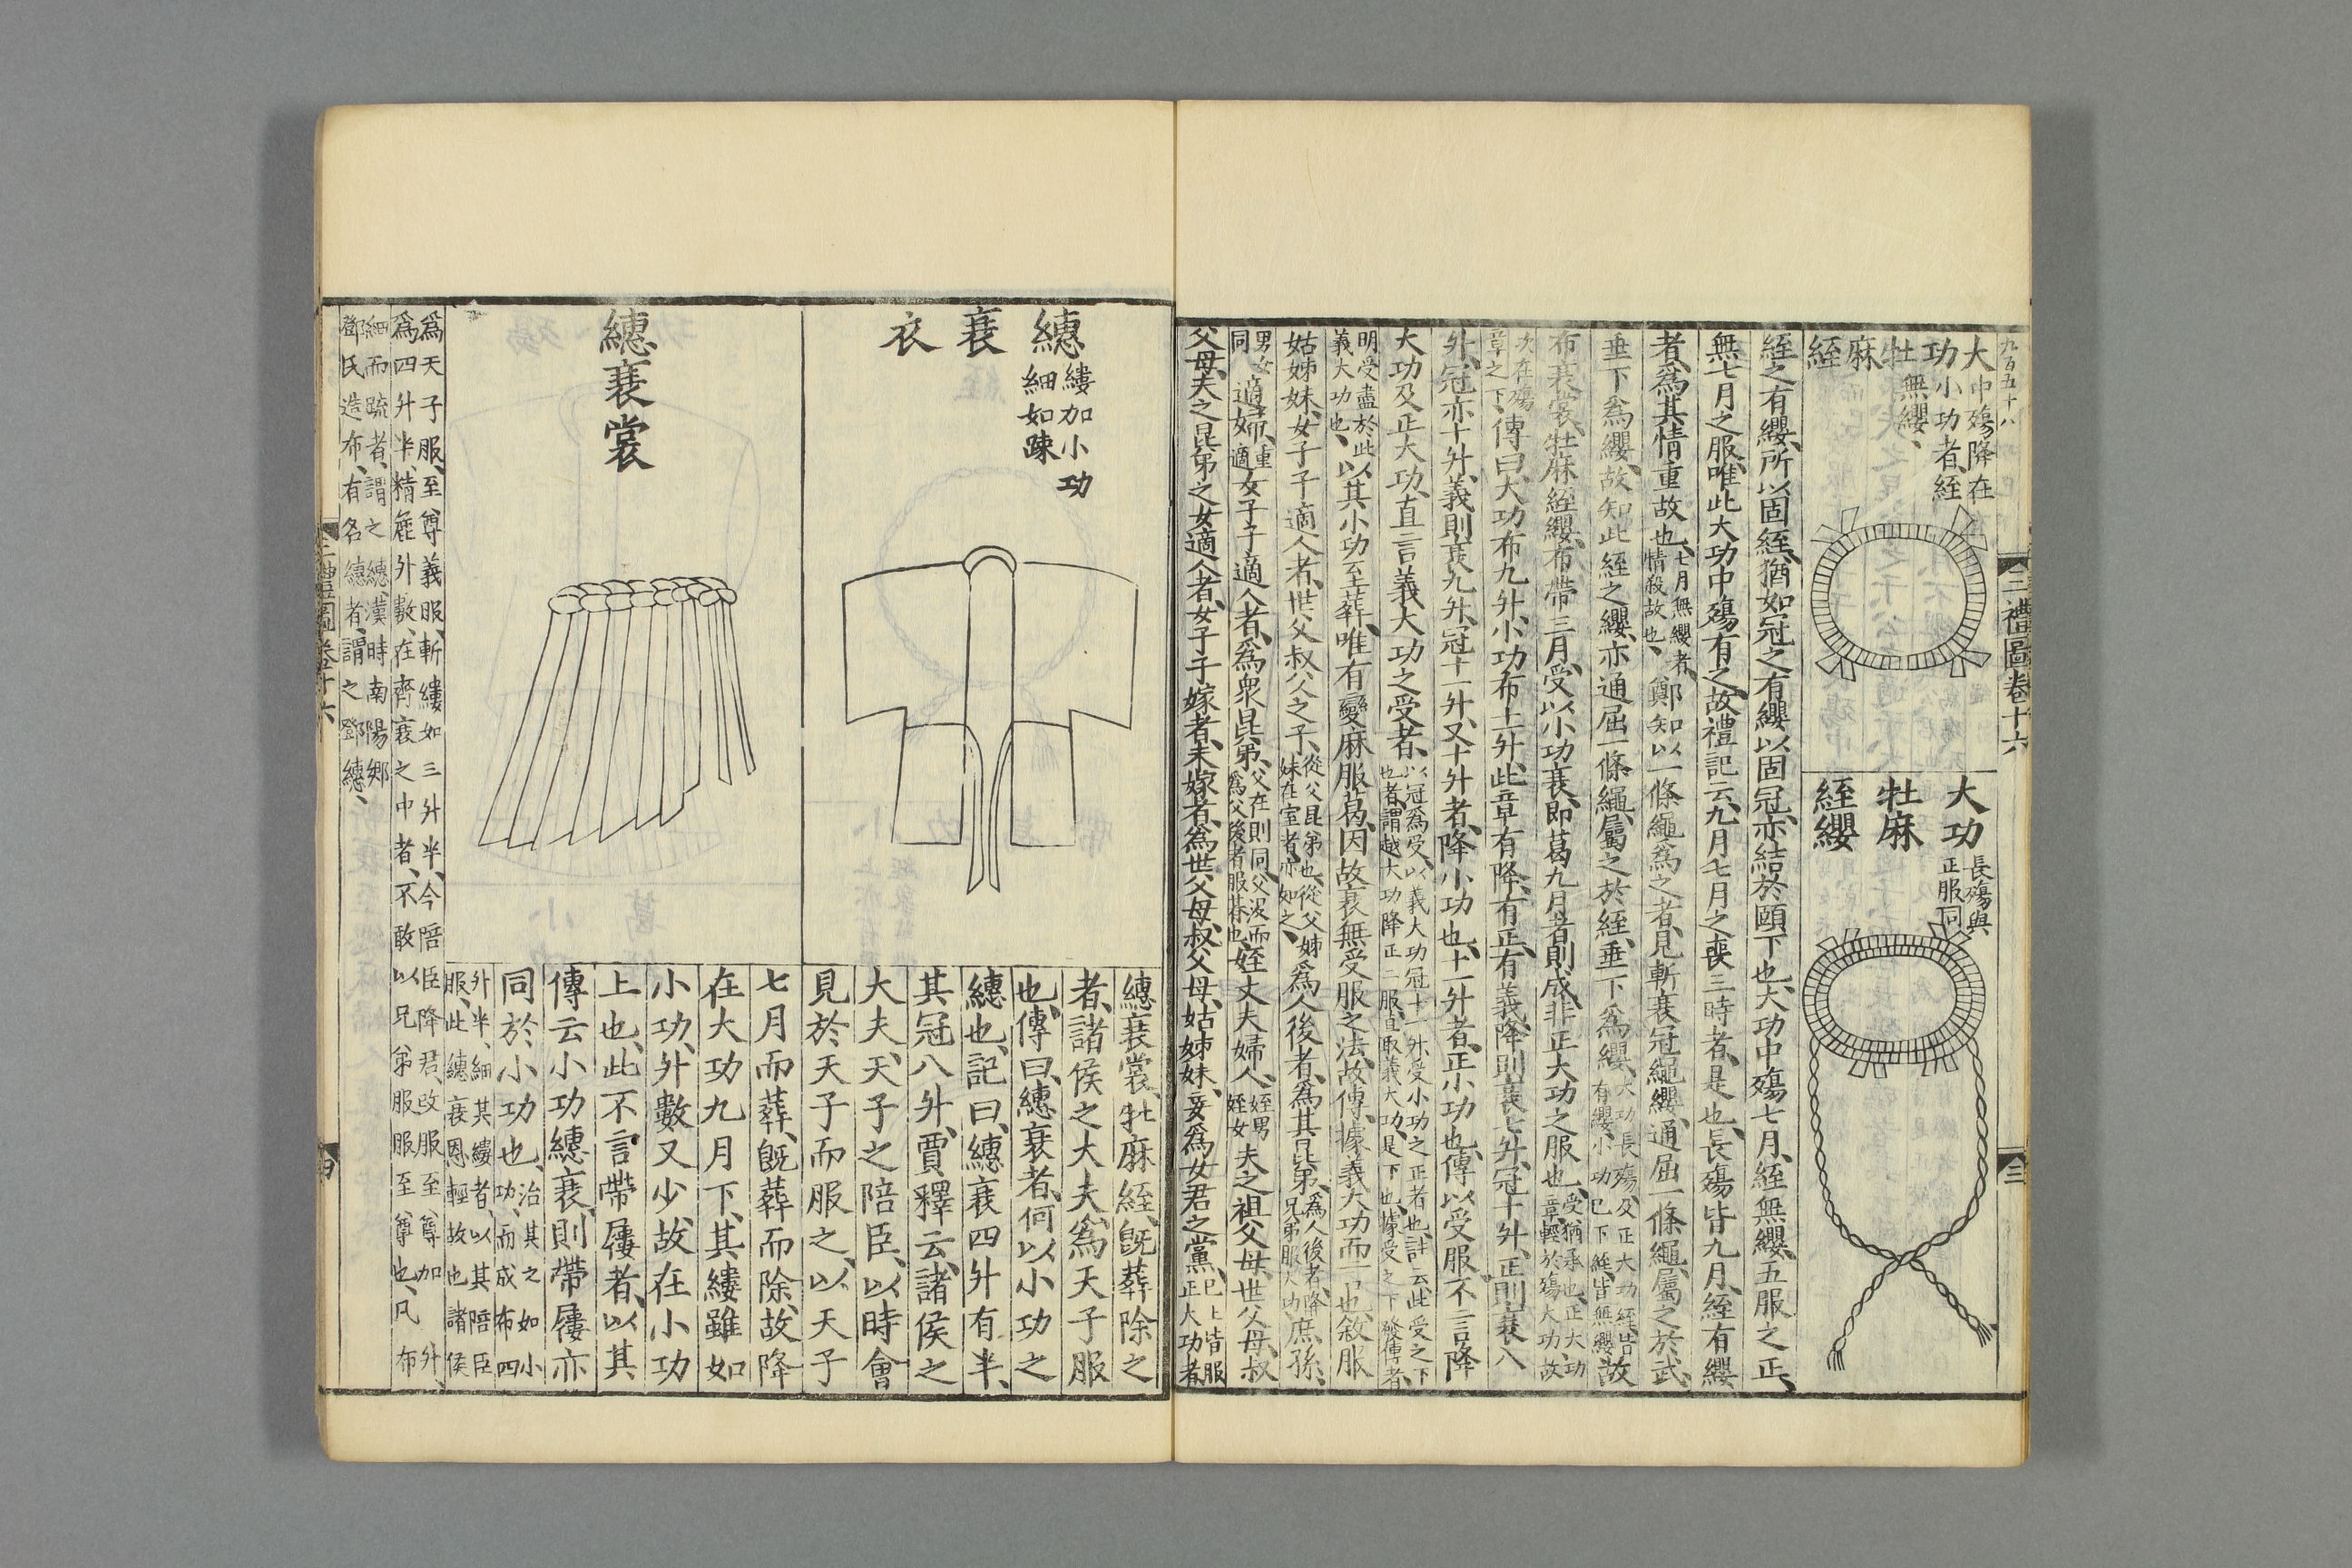 九百五十八
三禮圖卷十六
三
大功牡麻絰
中殤降在
小功者、絰
無纓、
大功牡麻絰纓
長殤與
正服同
絰之有纓、所以固絰、猶如冠之有纓、以固冠、亦結於頤下也、大功中殤七月、絰無纓、五服之正、
無七月之服、唯此大功中殤有之、故禮記云、九月七月之喪三時者、是也、長殤皆九月、絰有纓
者、爲其情重故也、七月無纓者、情殺故也、鄭知以一條繩爲之者、見斬衰冠繩纓、通屈一條繩、屬之於武、
垂下爲纓、故知此絰之纓、亦通屈一條繩、屬之於絰、垂下爲纓、大功長殤及正大功絰、皆有纓、小功已下絰、皆無纓、故
布衰裳、牡麻絰纓、布帶三月、受以小功衰、即葛九月者、則成非正大功之服也、受猶承也、正大功章、輕於殤大功、故
次在殤章之下、傳曰、大功布九升、小功布十一升、此章有降、有正、有義、降則衰七升、冠十升、正則衰八
升、冠亦十升、義則衰九升、冠十一升、又十升者、降小功也、十一升者、正小功也、傳以受服、不言降
大功及正大功、直言義大功之受者、以冠爲受、以義大功冠十一升、受小功之正者也、註云、此受之下也者、謂越大功降正二服、直取義大功、是下也、據受之下發傳者、
明受盡於此義大功也、以其小功至葬、唯有變麻服葛、因故衰無受服之法、故傳據義大功而言也、敘服
姑姊妹、女子子適人者、世父叔父之子、從父昆弟也、從父姊妹在室者、亦如之、爲人後者、爲其昆弟、爲人後者、降兄弟服大功、庶孫、
男女同、適婦、重適、女子子適人者、爲衆昆弟、父在則同、父沒而爲父後者服朞也、姪丈夫婦人、姪男姪女、夫之祖父母、世父母、叔
父母、夫之昆弟之女適人者、女子子嫁者、未嫁者、爲世父母、叔父母、姑姊妹、妾爲女君之黨、已上皆服正大功者、
繐衰衣
縷加小功
細如踈
繐衰裳
繐衰裳、牡麻絰、既葬除之
者、諸侯之大夫、爲天子服
也、傳曰、繐衰者、何以小功之
繐也、記曰、繐衰四升有半、
其冠八升、賈釋云、諸侯之
大夫、天子之陪臣、以時會
見於天子而服之、以天子
七月而葬、既葬而除、故降
在大功九月下、其縷雖如
小功、升數又少、故在小功
上也、此不言帶屨者、以其
傳云小功繐衰、則帶屨亦
同於小功也、治其之如小功、而成布四
升半、細其縷者、以其陪臣
服、此繐衰恩輕故也、諸侯
爲天子服、至尊義服、斬縷如三升半、今陪臣降君、改服至尊加一升、
爲四升半、精麁升數、在齊衰之中者、不敢以兄弟服服至尊也、凡布
細而踈者、謂之繐、漢時南陽鄉
鄧氏造布、有名繐者、謂之鄧繐、
三禮圖卷十六
四